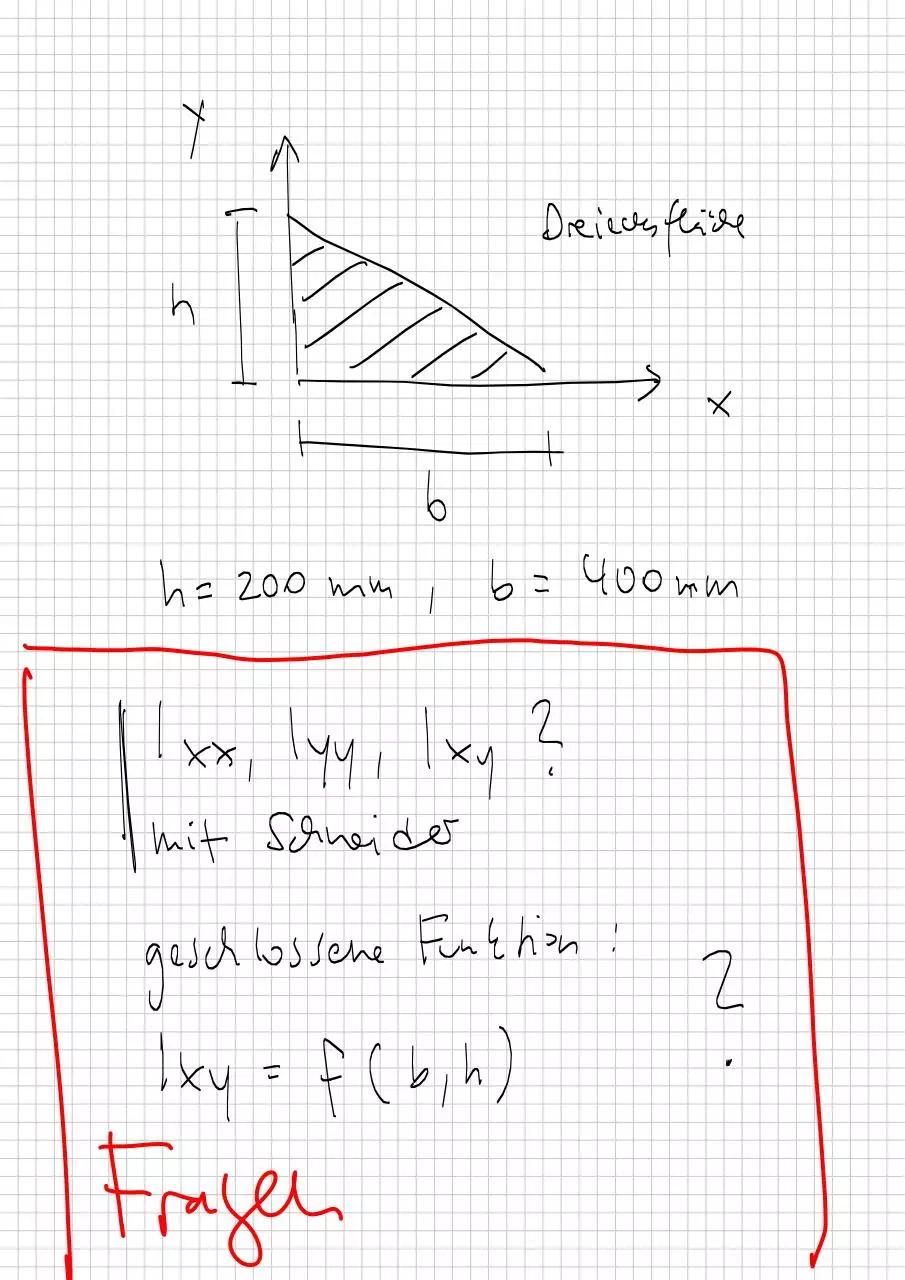 y
Dreiecksfläche
h
x
b
h = 200 mm, b = 400 mm
Ixx, Iyy, Ixy ?
mit Schneider
geschlossene Funktion :
?
Ixy = f(b,h)
Fragen